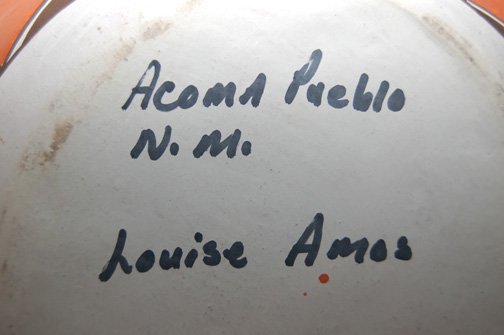 Acoma Pueblo
N. M.
Louise Amos